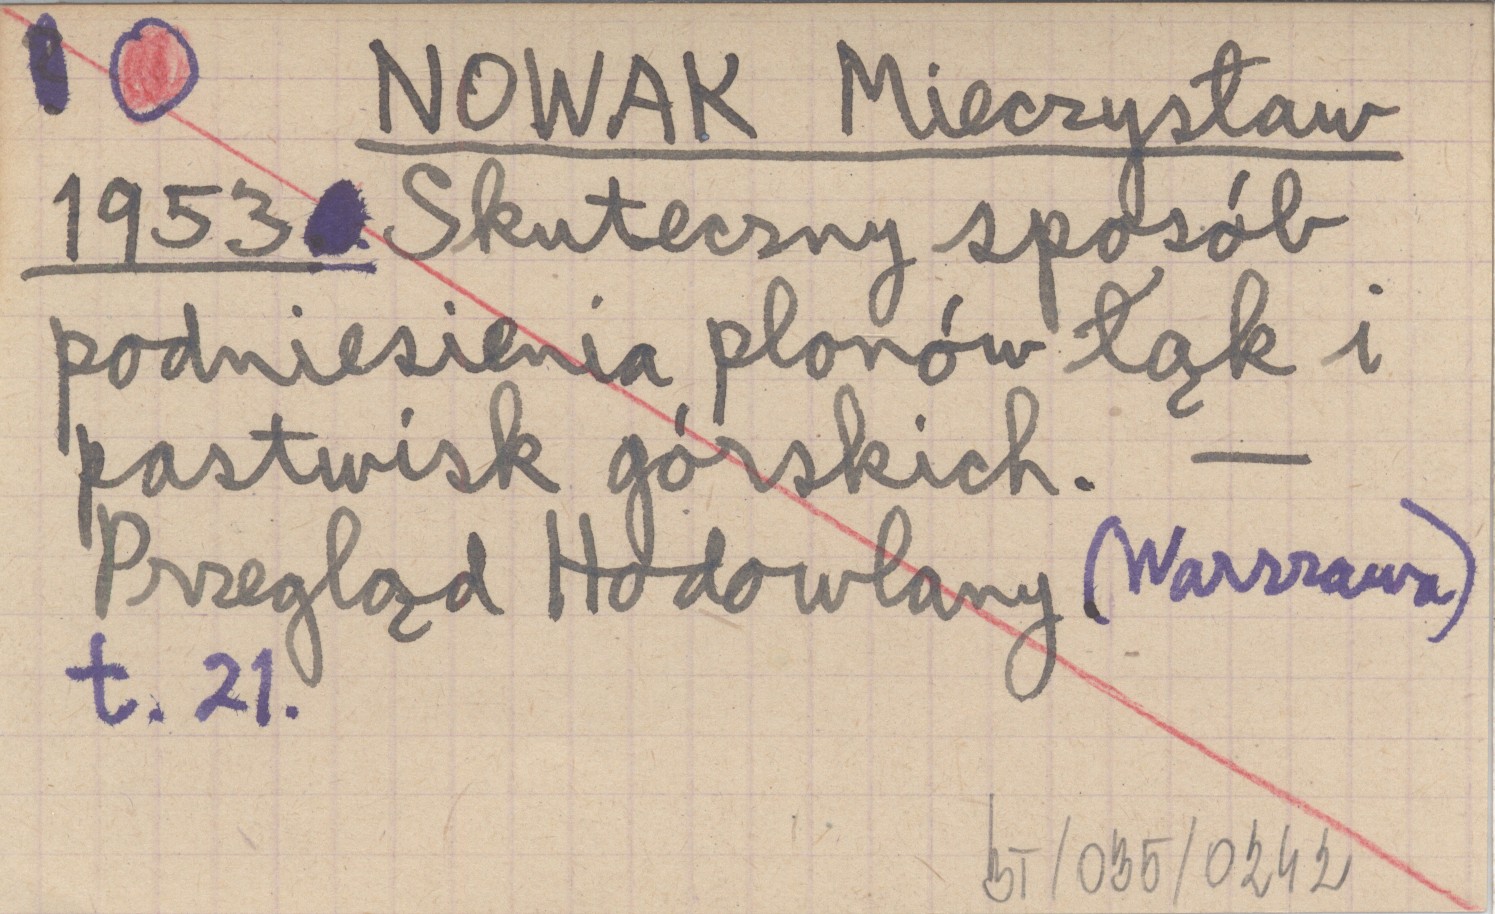 NOWAK Mieczysław
1953. Skuteczny sposób
podniesienia plonów łąk i
pastwisk górskich. —
Przegląd Hodowlany (Warszawa)
t. 21.
BT/035/0242